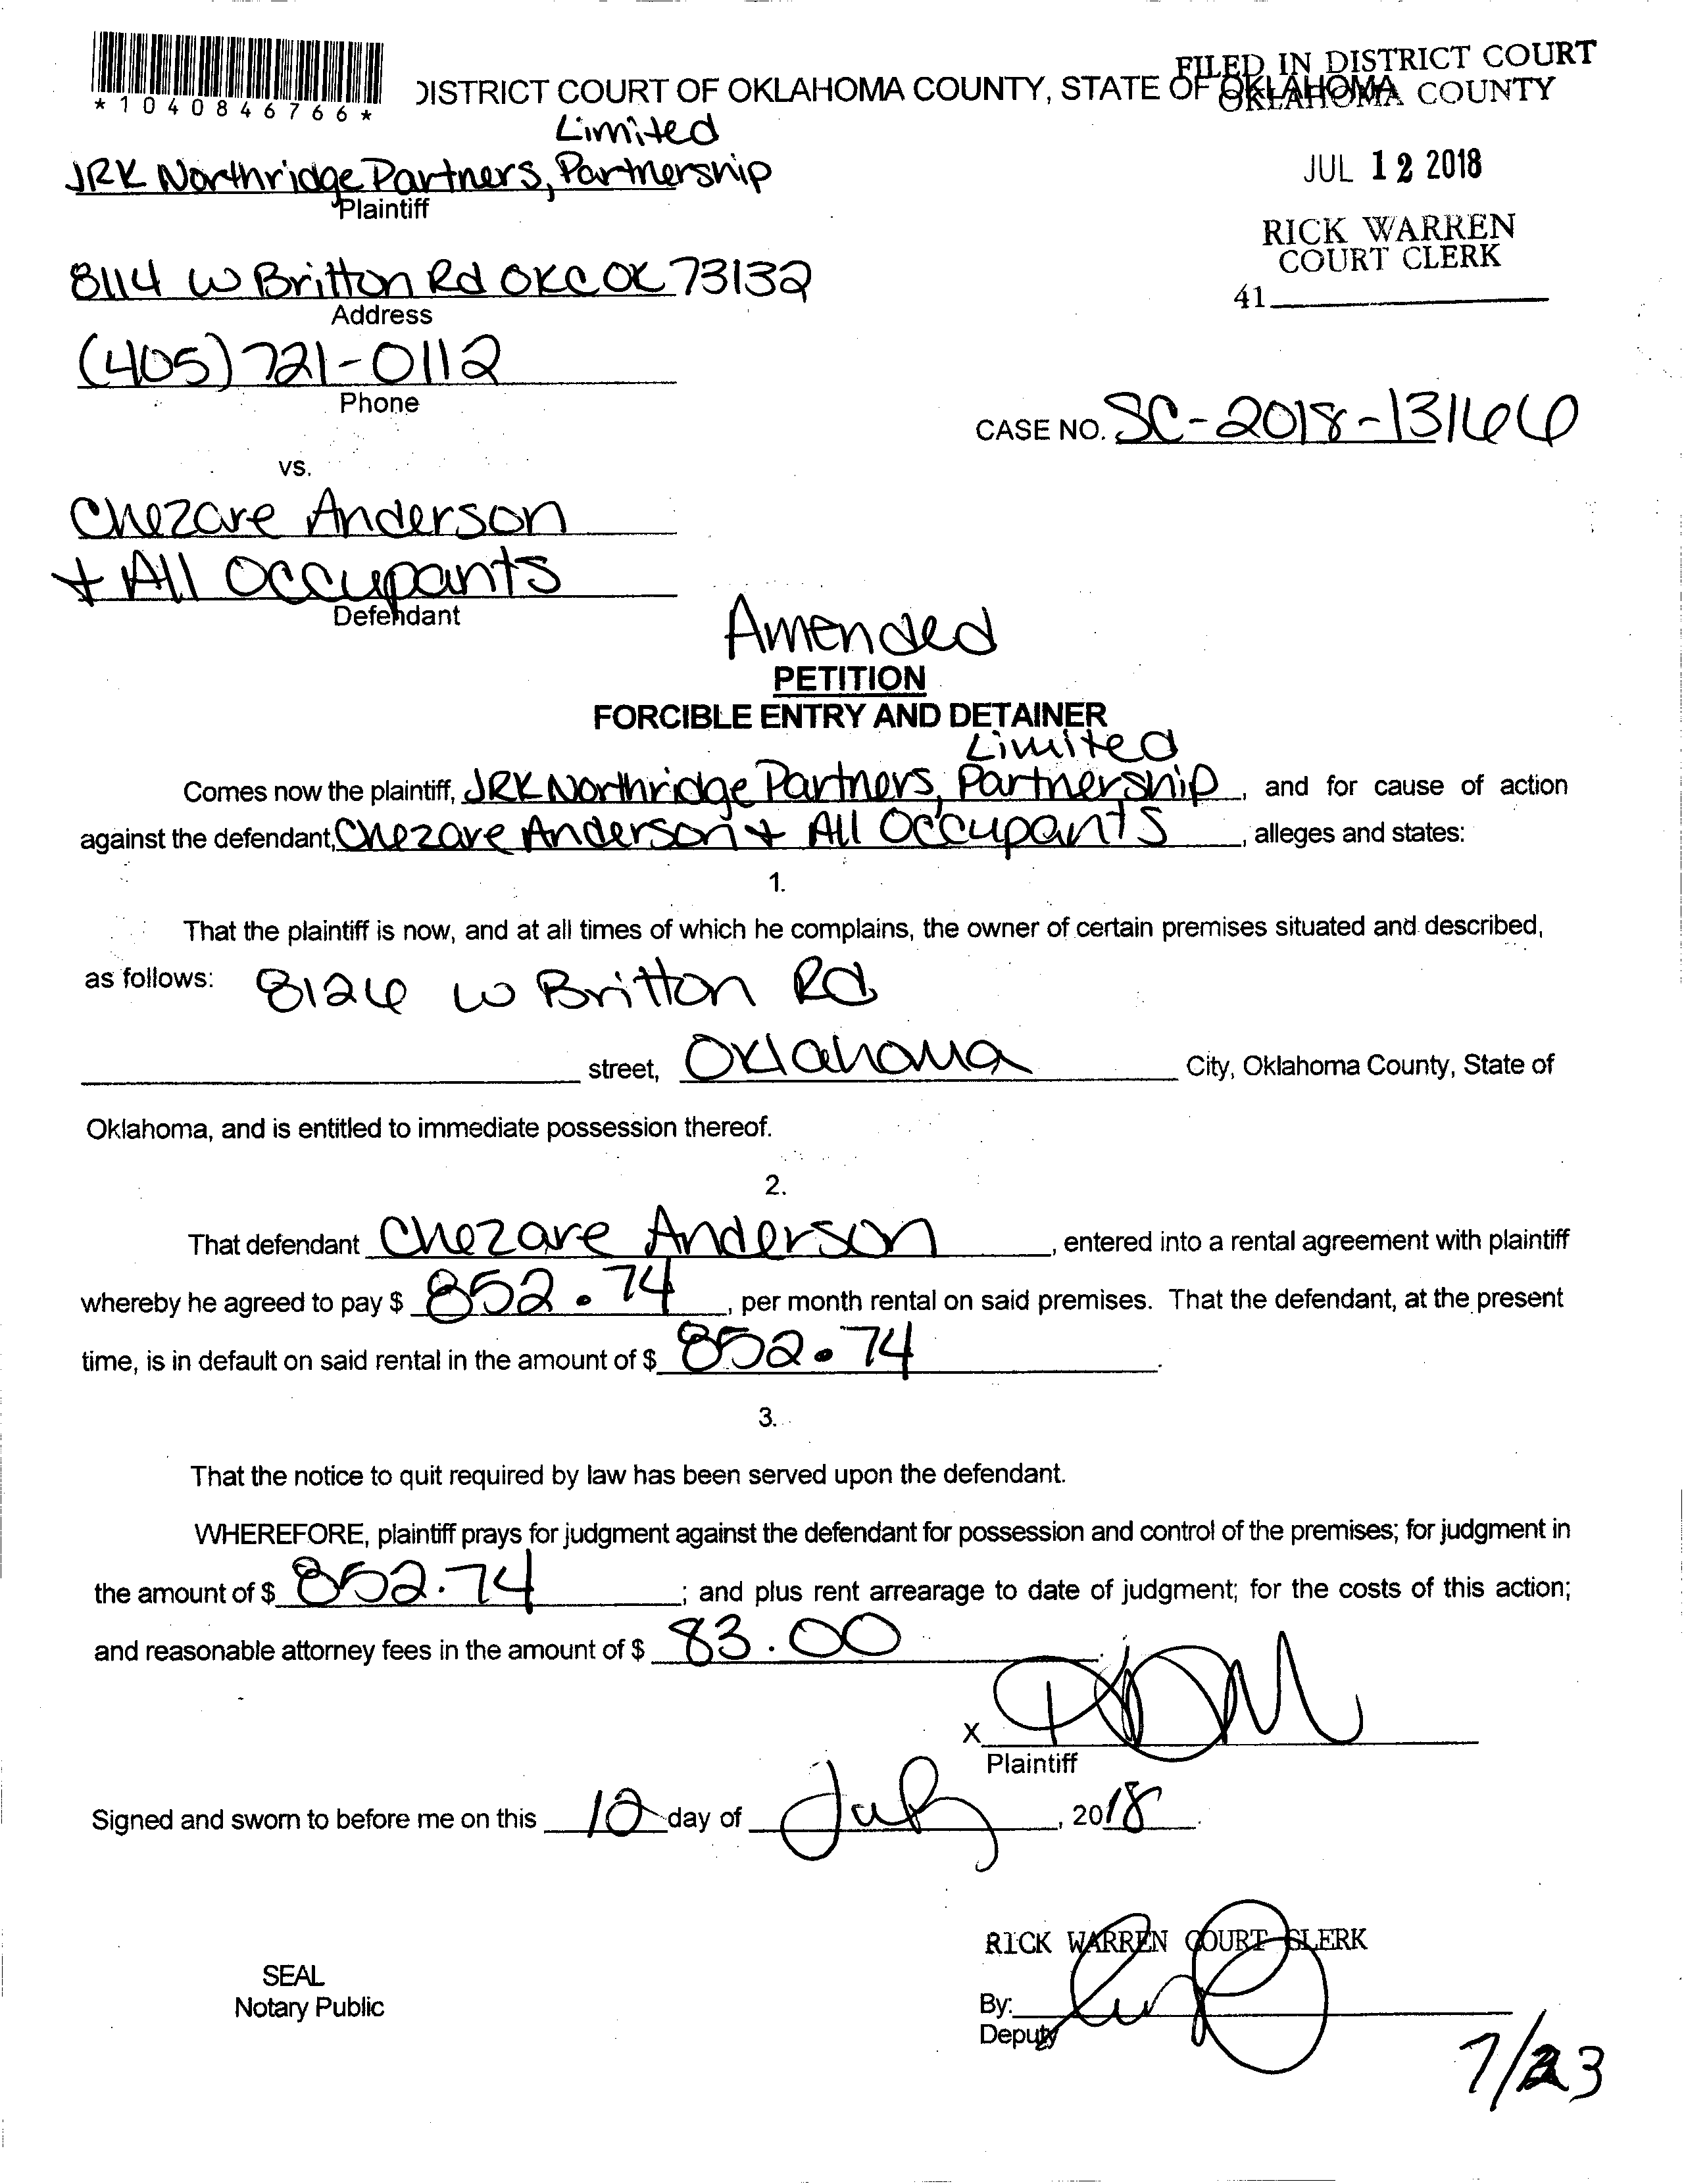 *1040846766*
DISTRICT COURT OF OKLAHOMA COUNTY, STATE OF OKLAHOMA
FILED IN DISTRICT COURT
OKLAHOMA COUNTY
JUL 12 2018
RICK WARREN
COURT CLERK
41
Limited
JRK Northridge Partners, Partnership
Plaintiff
8114 W Britton Rd OKC OK 73132
Address
(405) 721-0112
Phone
CASE NO. SC-2018-13166
vs.
Chezare Anderson
+ All Occupants
Defendant
Amended
PETITION
FORCIBLE ENTRY AND DETAINER
Limited
Comes now the plaintiff, JRK Northridge Partners, Partnership, and for cause of action
against the defendant, Chezare Anderson + All Occupants, alleges and states:
1.
That the plaintiff is now, and at all times of which he complains, the owner of certain premises situated and described,
as follows: 8126 W Britton Rd
street, Oklahoma City, Oklahoma County, State of
Oklahoma, and is entitled to immediate possession thereof.
2.
That defendant Chezare Anderson, entered into a rental agreement with plaintiff
whereby he agreed to pay $ 852.74, per month rental on said premises. That the defendant, at the present
time, is in default on said rental in the amount of $ 852.74.
3.
That the notice to quit required by law has been served upon the defendant.
WHEREFORE, plaintiff prays for judgment against the defendant for possession and control of the premises; for judgment in
the amount of $ 852.74; and plus rent arrearage to date of judgment; for the costs of this action;
and reasonable attorney fees in the amount of $ 83.00.
X
Plaintiff
Signed and sworn to before me on this 10 day of July, 2018.
RICK WARREN COURT CLERK
SEAL
Notary Public
By:
Deputy
7/23